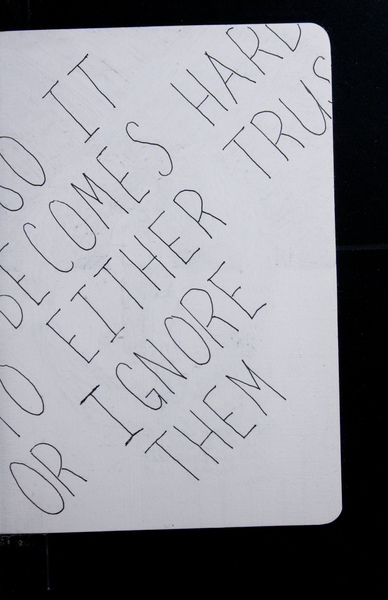 SO IT
BECOMES HARD
TO EITHER TRUS
OR IGNORE
THEM